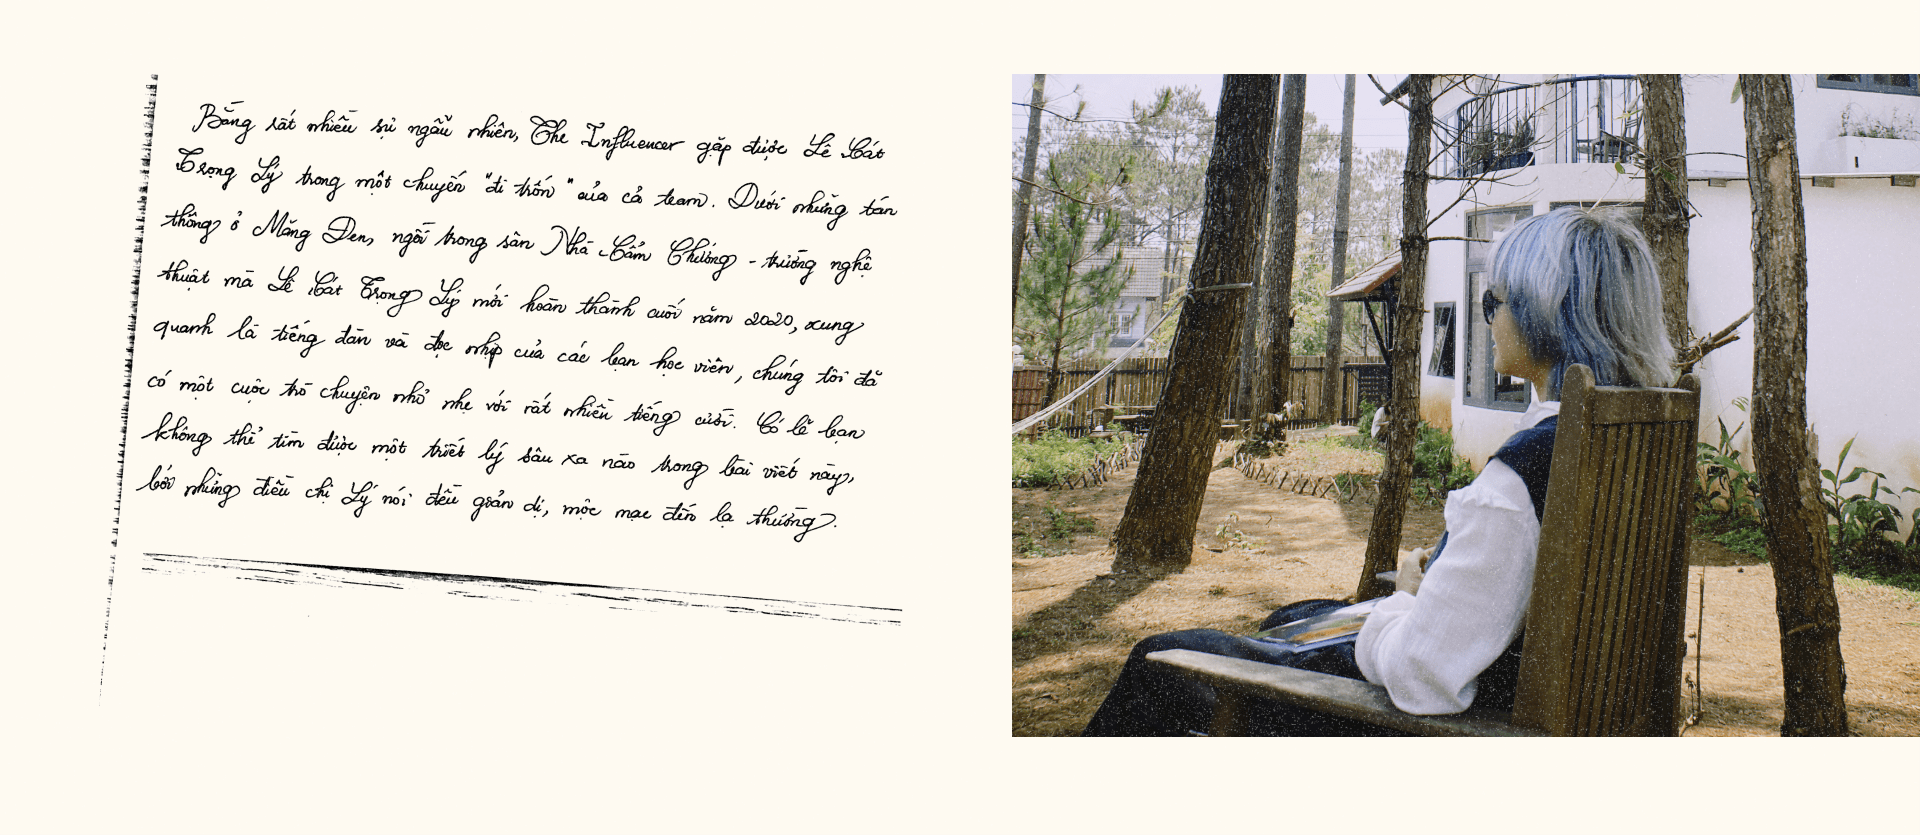 Bằng rất nhiều sự ngẫu nhiên, The Influencer gặp được Lê Cát
Trọng Lý trong một chuyến "đi trốn" của cả team. Dưới những tán
thông ở Măng Đen, ngồi trong sân Nhà Cẩm Chướng - trường nghệ
thuật mà Lê Cát Trọng Lý mới hoàn thành cuối năm 2020, xung
quanh là tiếng đàn và đọc nhịp của các bạn học viên, chúng tôi đã
có một cuộc trò chuyện nhỏ nhẹ với rất nhiều tiếng cười. Có lẽ bạn
không thể tìm được một triết lý sâu xa nào trong bài viết này,
bởi những điều chị Lý nói đều giản dị, mộc mạc đến lạ thường.